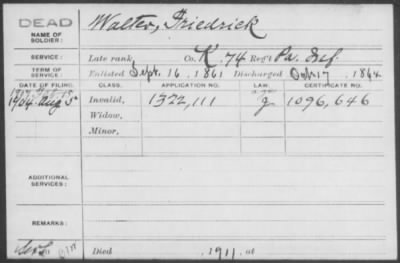 DEAD
NAME OF SOLDIER:
Walter, Friedrick
SERVICE:
Late rank, Co. K, 74 Reg't Pa. Inf.
TERM OF SERVICE:
Enlisted Sept. 16, 1861 Discharged Oct 17, 1864
DATE OF FILING. CLASS. APPLICATION NO. LAW. CERTIFICATE NO.
1904 Aug 5 Invalid, 1322,111 g 1096,646
Widow,
Minor,
ADDITIONAL SERVICES:
REMARKS:
Died 1911, at